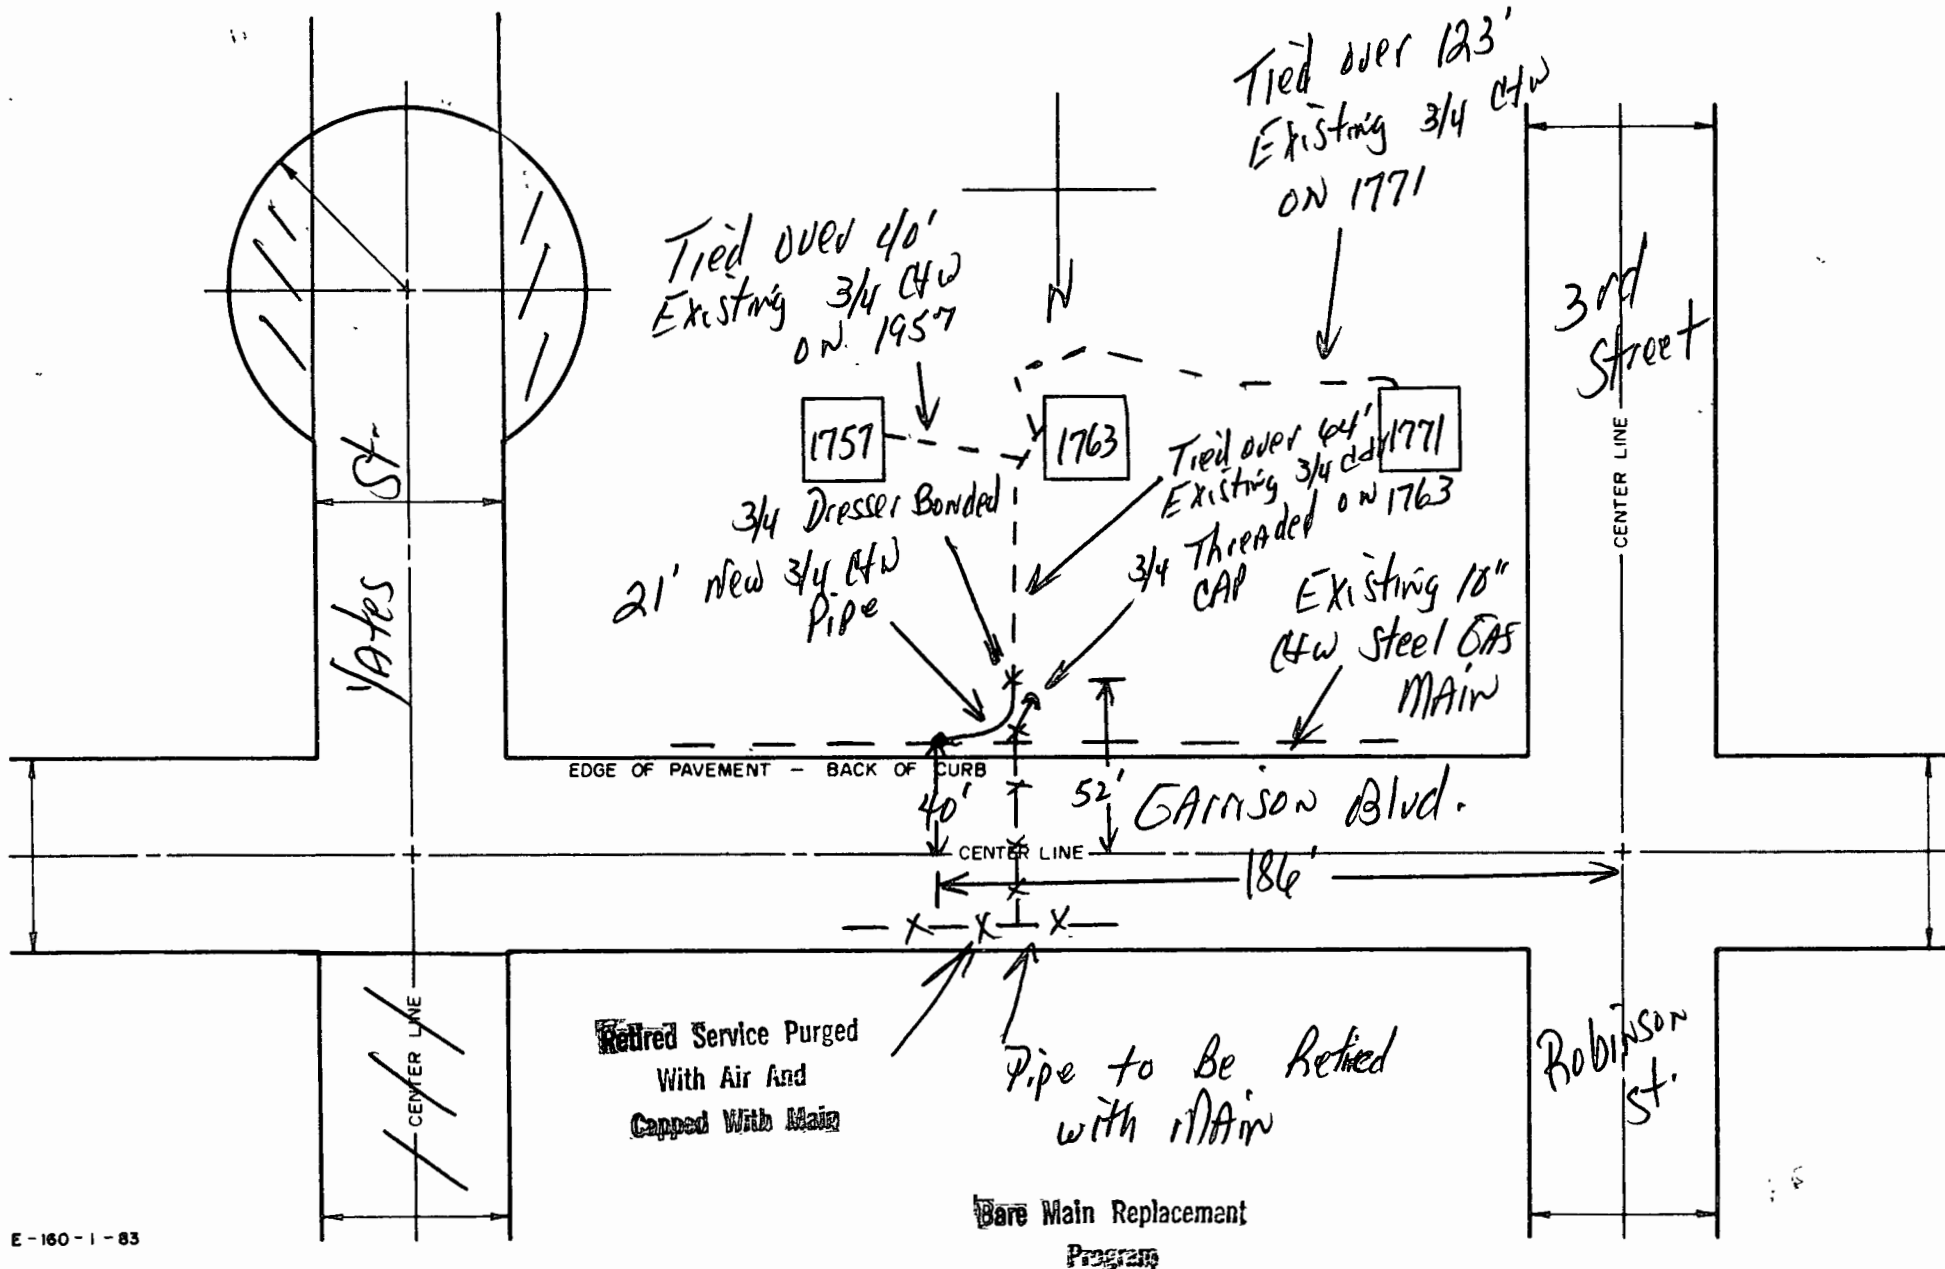 Tied over 123'
Existing 3/4 C+W
ON 1771
Tied over 40'
Existing 3/4 C+W
ON 1957
N
3rd
Street
1757
1763
1771
Tied over 44'
Existing 3/4
ON 1763
3/4 Dresser Bonded
21' New 3/4 C+W
Pipe
3/4 Threaded
CAP
Existing 10"
C+W Steel GAS
MAIN
Yates St.
CENTER LINE
EDGE OF PAVEMENT - BACK OF CURB
40'
52'
GArrison Blvd.
CENTER LINE
186'
CENTER LINE
Retired Service Purged
With Air And
Capped With Main
Pipe to Be Retired
with MAin
Robinson
St.
Bare Main Replacement
Program
E-160-1-83